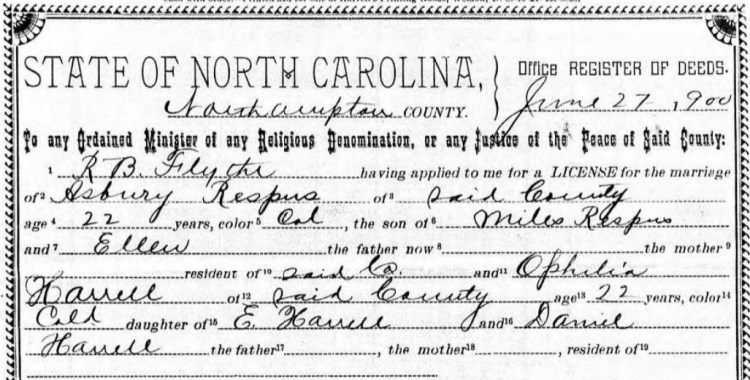 STATE OF NORTH CAROLINA, Office REGISTER OF DEEDS.
Northampton COUNTY. June 27, 1900
To any Ordained Minister of any Religious Denomination, or any Justice of the Peace of Said County:
1 R B. Flythe having applied to me for a LICENSE for the marriage
of 2 Asbury Respus of 3 said County
age 4 22 years, color 5 Col , the son of 6 Miles Respus
and 7 Ellen the father now 8 the mother 9
resident of 10 said Co. and 11 Ophelia
Harrell of 12 said County age 13 22 years, color 14
Cold daughter of 15 E Harrell and 16 Daniel
Harrell the father 17 , the mother 18 , resident of 19